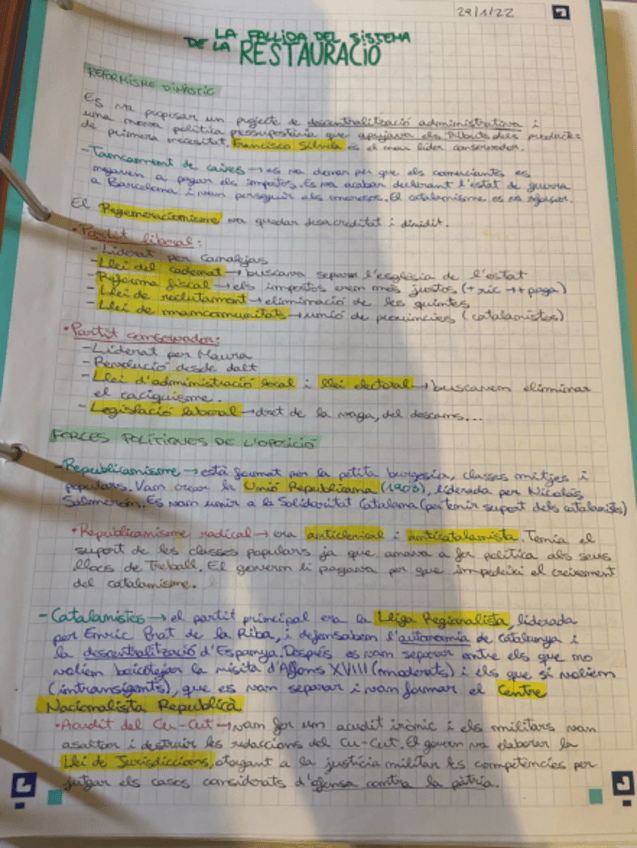 29/1/22
LA FALLIDA DEL SISTEMA
DE LA RESTAURACIÓ
REFORMISME DINÀSTIC
Es va proposar un projecte de descentralització administrativa i
una nova política pressupostària que apujava els tributs dels productes
de primera necessitat. Francisco Silvela és el nou líder conservador.
- Tancament de caixes → es va donar per que els comerciants es
negaven a pagar els impostos. Es va acabar declarant l'estat de guerra
a Barcelona i van perseguir als morosos. El catalanisme es va reforçar.
El Regeneracionisme va quedar desacreditat i dividit.
• Partit liberal:
- Liderat per Canalejas
- Llei del cadenat → buscava separar l'església de l'estat
- Reforma fiscal → els impostos eren més justos (+ ric → + paga)
- Llei de reclutament → eliminació de les quintes
- Llei de mancomunitats → unió de províncies (catalanistes)
• Partit conservador:
- Liderat per Maura
- Revolució desde dalt
- Llei d'administració local i llei electoral → buscaven eliminar
el caciquisme.
- Legislació laboral → dret de la vaga, del descans...
FORCES POLÍTIQUES DE L'OPOSICIÓ
- Republicanisme → està format per la petita burgesia, classes mitjes i
populars. Van crear la Unió Republicana (1903), liderada per Nicolás
Salmerón. Es van unir a la Solidaritat Catalana (per tenir suport dels catalanistes)
• Republicanisme radical → era anticlerical i anticatalanista. Tenia el
suport de les classes populars ja que anava a fer política als seus
llocs de treball. El govern li pagava per que impedeixi el creixement
del catalanisme.
- Catalanistes → el partit principal era la Lliga Regionalista, liderada
per Enric Prat de la Riba, i defensaben l'autonomia de Catalunya i
la descentralització d'Espanya. Després es van separar entre els que no
volien boicotejar la visita d'Alfons XVIII (moderats) i els que si volien
(intransigents), que es van separar i van formar el Centre
Nacionalista Republicà
• Acudit del Cu-Cut → van fer un acudit irònic i els militars van
asaltar i destruir les redaccions del Cu-Cut. El govern va elaborar la
Llei de Jurisdiccions, otorgant a la justícia militar les competències per
jutjar els casos considerats d'ofensa contra la pàtria.